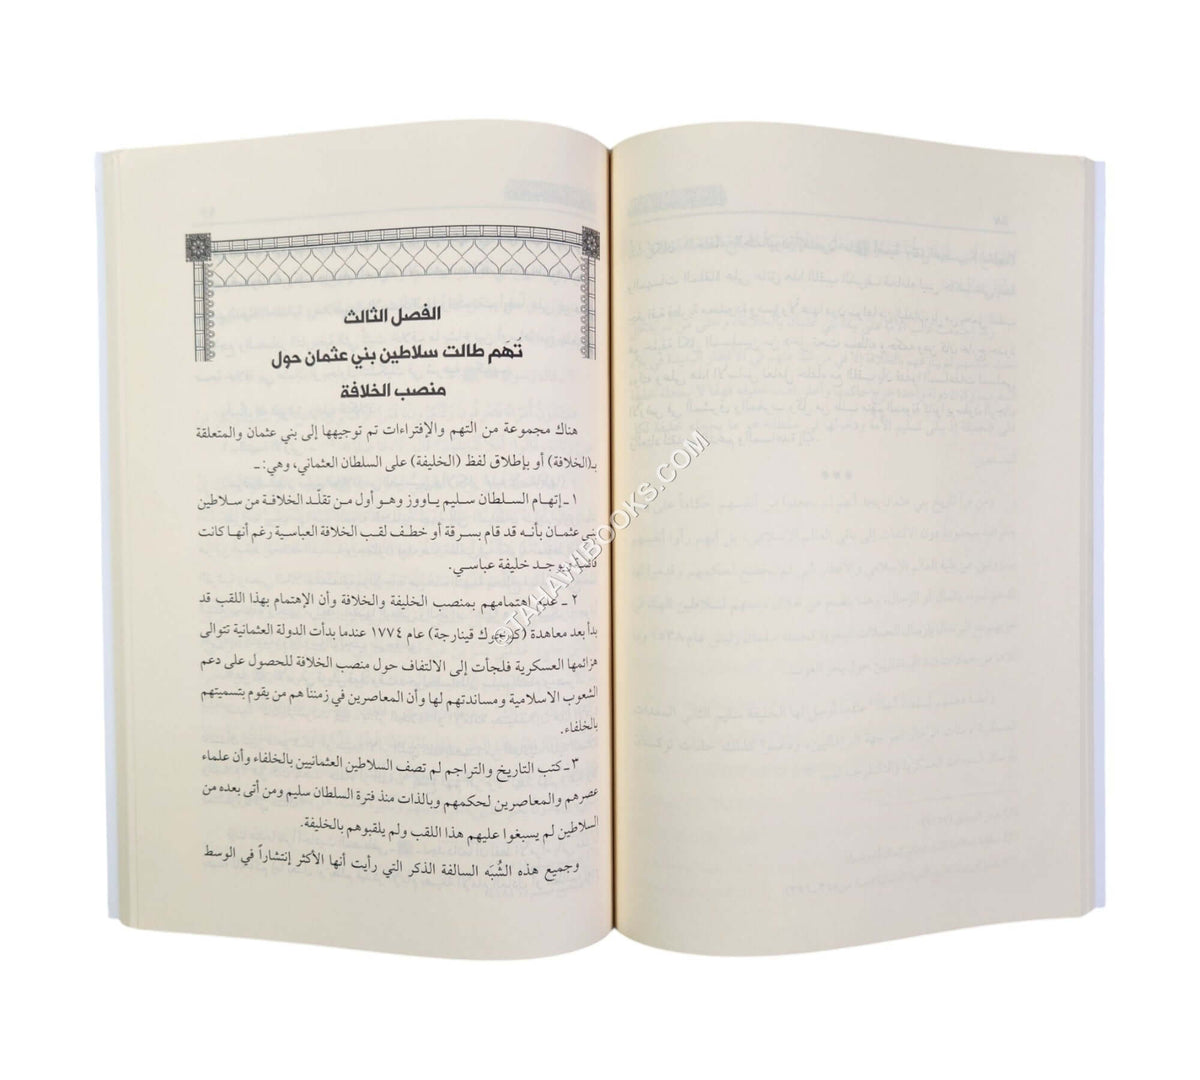 الفصل الثالث
تُهَم طالت سلاطين بني عثمان حول
منصب الخلافة
هناك مجموعة من التهم والإفتراءات تم توجيهها إلى بني عثمان والمتعلقة
بـ(الخلافة) أو بإطلاق لفظ (الخليفة) على السلطان العثماني، وهي: ـ
١ ـ إتهام السلطان سليم ياووز وهو أول من تقلّد الخلافة من سلاطين
بني عثمان بأنه قد قام بسرقة أو خطف لقب الخلافة العباسية رغم أنها كانت
يوجد خليفة عباسي.
٢ ـ عدم إهتمامهم بمنصب الخليفة والخلافة وأن الإهتمام بهذا اللقب قد
بدأ بعد معاهدة قينارجة) عام ١٧٧٤ عندما بدأت الدولة العثمانية تتوالى
هزائمها العسكرية فلجأت إلى الالتفاف حول منصب الخلافة للحصول على دعم
الشعوب الاسلامية ومساندتهم لها وأن المعاصرين في زمننا هم من يقوم بتسميتهم
بالخلفاء.
٣ ـ كتب التاريخ والتراجم لم تصف السلاطين العثمانيين بالخلفاء وأن علماء
عصرهم والمعاصرين لحكمهم وبالذات منذ فترة السلطان سليم ومن أتى بعده من
السلاطين لم يسبغوا عليهم هذا اللقب ولم يلقبوهم بالخليفة.
وجميع هذه الشُبَه السالفة الذكر التي رأيت أنها الأكثر إنتشاراً في الوسط
©TAHAWIBOOKS.COM